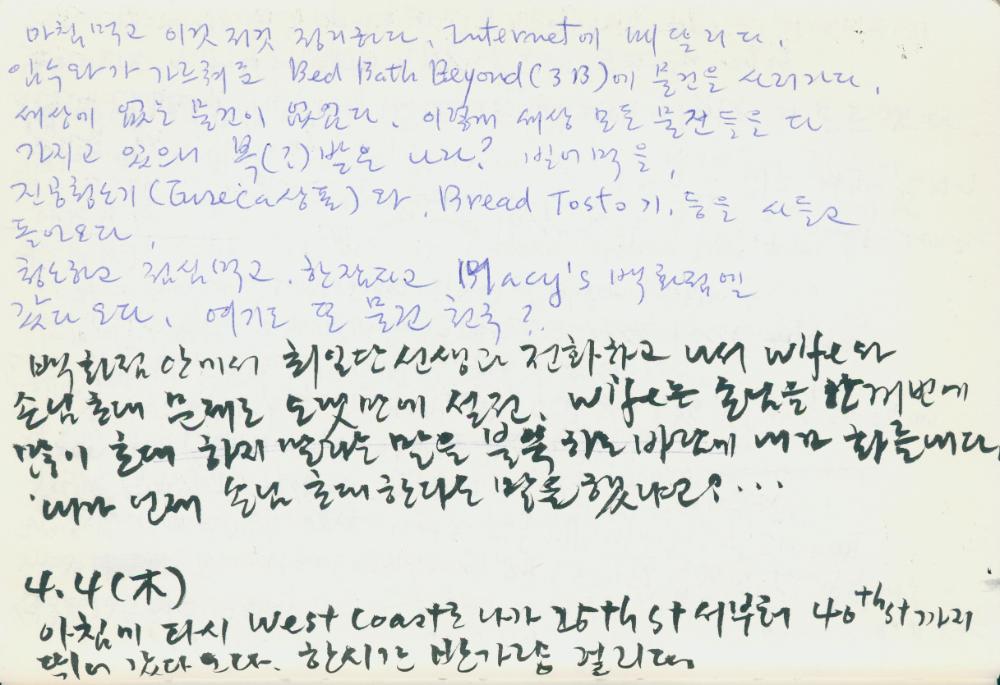 아침먹고 이것저것 정리하다. Internet에 매달리다.
가르켜준 Bed Bath Beyond(3B)에 물건을 사러가다.
세상에 없는 물건이 없었다. 이렇게 세상 모든 물건들을 다
가지고 있으니 복(?)받은 나라?
진공청소기(Eureca상표)와, Bread Tosto기, 등을 사들고
돌아오다.
청소하고 점심먹고. 한잠자고 Macy's 백화점엘
갔다 오다. 여기도 또 물건 천국?.
백화점 안에서 최일단선생과 전화하고 나서 wife와
손님초대 문제로 오랫만에 설전. wife는 손님을 한꺼번에
많이 초대 하지 말라는 말을 불쑥 하는 바람에 내가 화를내다.
'내가 언제 손님 초대한다는 말을 했냐고?...
4.4(木)
아침에 다시 West Coast로 나가 25th st서부터 40th st까지
뛰어 갔다오다. 한시간 반가량 걸리다.